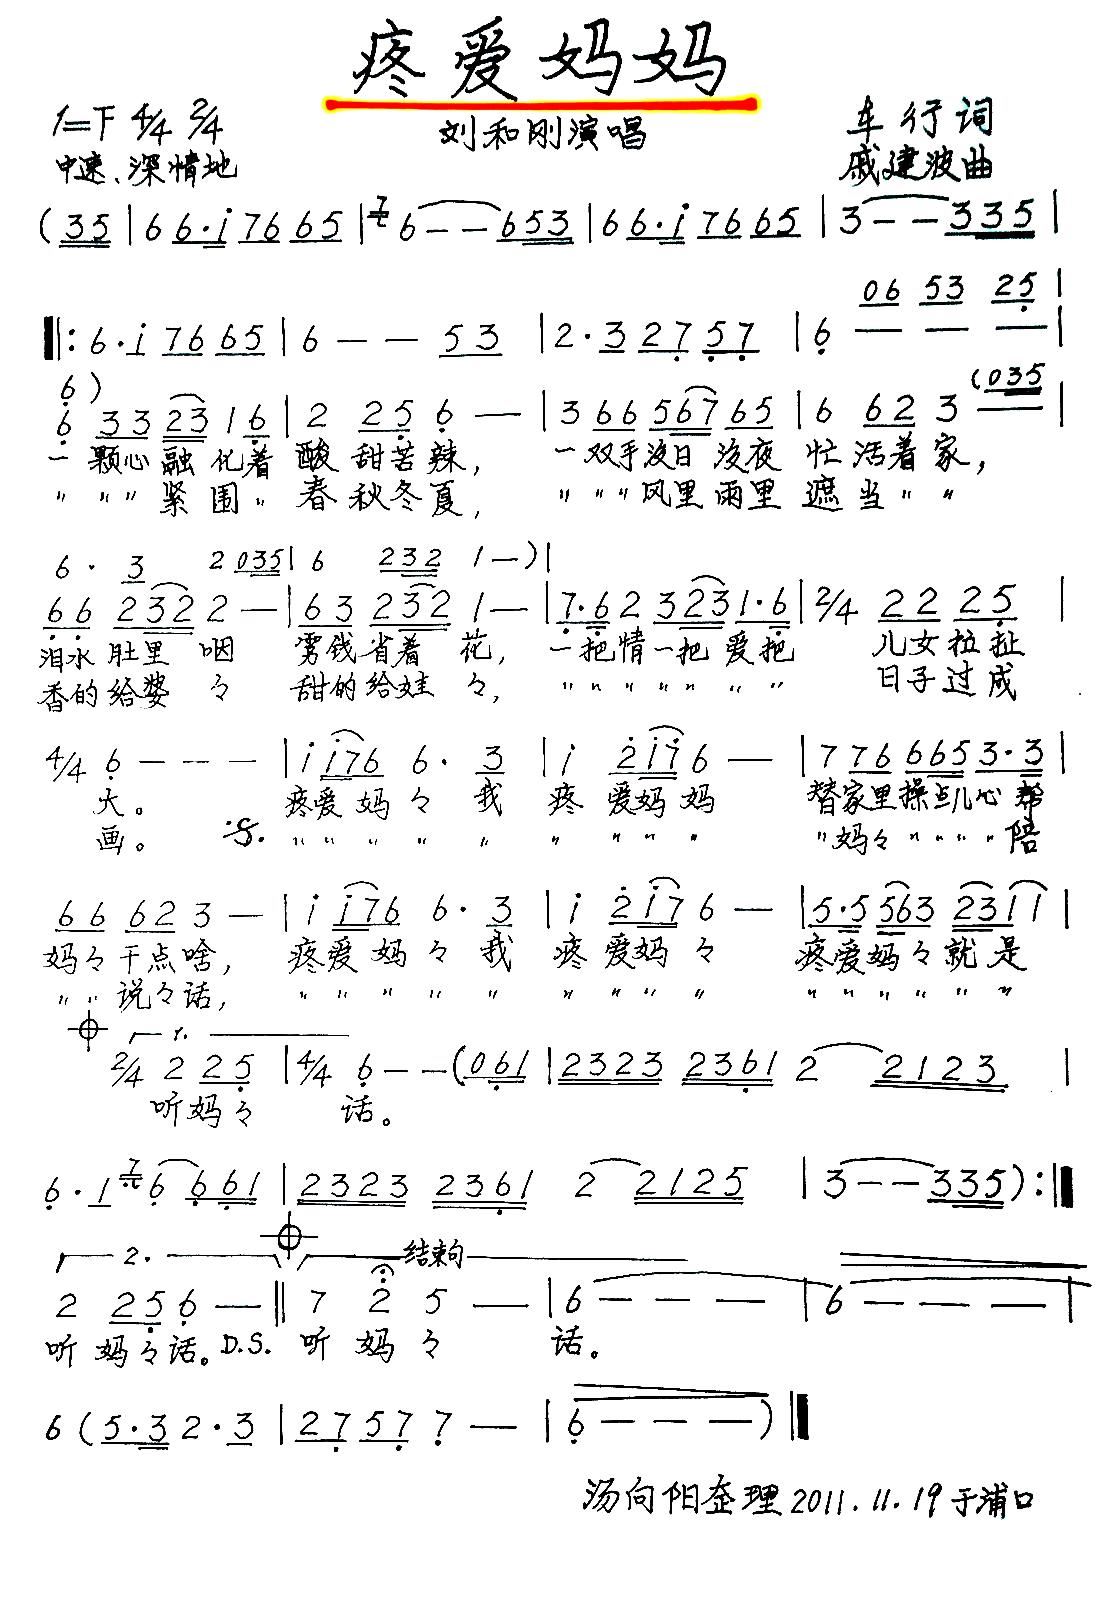 疼爱妈妈
1=F 4/4 2/4
刘和刚演唱
车行词
中速、深情地
戚建波曲
(35|66·i7665|6--653|66·i7665|3--335|
06 53 25|
‖:6·i7665|6--53|2·32757|6---|
6)
(035
6332316|2256-|36656765|6623-|
一颗心融化着酸甜苦辣,一双手没日没夜忙活着家,
〃〃〃紧围〃春秋冬夏,〃〃〃风里雨里遮当〃〃
6·3 2035|6 232 1-)|
662322-|632321-|7·623231·6|2/4 2225|
泪水肚里咽 雾钱省着花,一把情一把爱把 儿女拉扯
香的给婆々 甜的给娃々,〃〃〃〃〃〃 日子过成
4/4 6---|ii766·3|i2i76-|77766653·3|
大。 疼爱妈々我 疼爱妈妈 替家里操点儿心帮
画。 :S. 〃〃〃〃〃〃〃〃〃 〃妈々〃〃〃〃陪
66623-|ii766·3|i2i76-|5·55632311|
妈々干点啥,疼爱妈々我 疼爱妈々 疼爱妈々就是
〃〃说々话,〃〃〃〃〃〃〃〃〃〃〃〃〃〃〃
1.
2/4 225|4/4 6--(061|23232361 2 2123|
听妈々 话。
6·1 7 6 661|23232361 2 2125|3--335):‖
2. 结束句
2256-‖725-|6---|6---|
听妈々话。D.S. 听妈々 话。
6(5·32·3|27577-|6---)‖
汤向阳整理2011.11.19于浦口